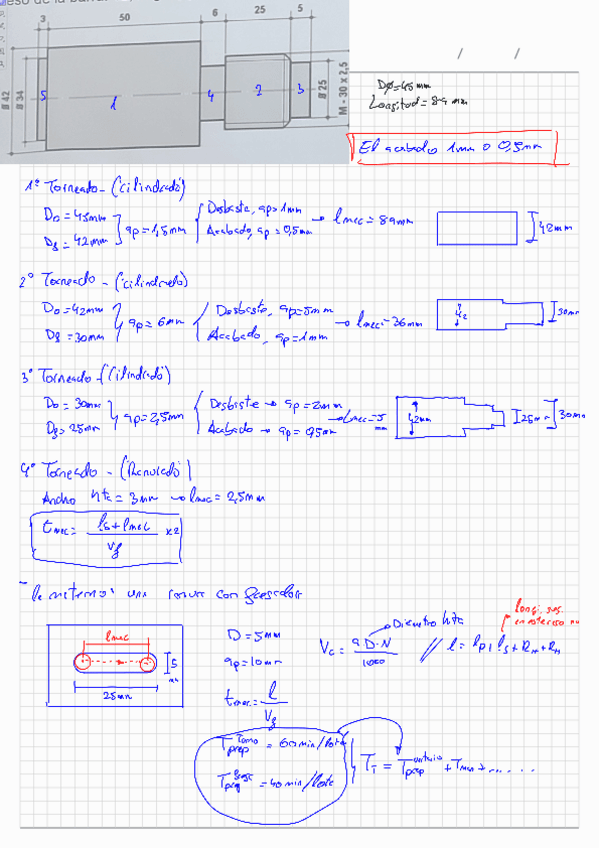 eso de la barra
3 50 6 25 5
Ø 42
Ø 34
5 1 4 2 3
Ø 25
M - 30 x 2,5
Dø=45mm
Longitud = 89 mm
El acabado 1mm o 0,5mm
1º Torneado - (cilindrado)
D0 = 45mm
Df = 42mm
ap=1,5mm
Desbaste, ap=1mm
Acabado, ap=0,5mm
→ lmec = 89mm
42mm
2º Torneado - (cilindrado)
D0 = 42mm
Df = 30mm
ap = 6mm
Desbaste, ap=5mm
Acabado, ap=1mm
→ lmec=36mm
42
30mm
3º Torneado - (Cilindrado)
D0 = 30mm
Df = 25mm
ap=2,5mm
Desbaste → ap=2mm
Acabado → ap=0,5mm
→ lmec=5 mm
42mm
25mm
30mm
4º Torneado - (Ranurado)
Ancho hta = 3mm → lmec = 2,5mm
tmec = ls + lmec / Vf x2
una ranura con fresadora
lmec
5 mm
25mm
D = 5mm
ap=10mm
tmec = l / Vf
Vc = π·D·N / 1000
Diametro hta
// l = lp + ls + RH + RH
longi. seg.
T Torno prep = 60 min/lote
T Fresa prep = 40 min/lote
TT = T unitario prep + Tman + ......